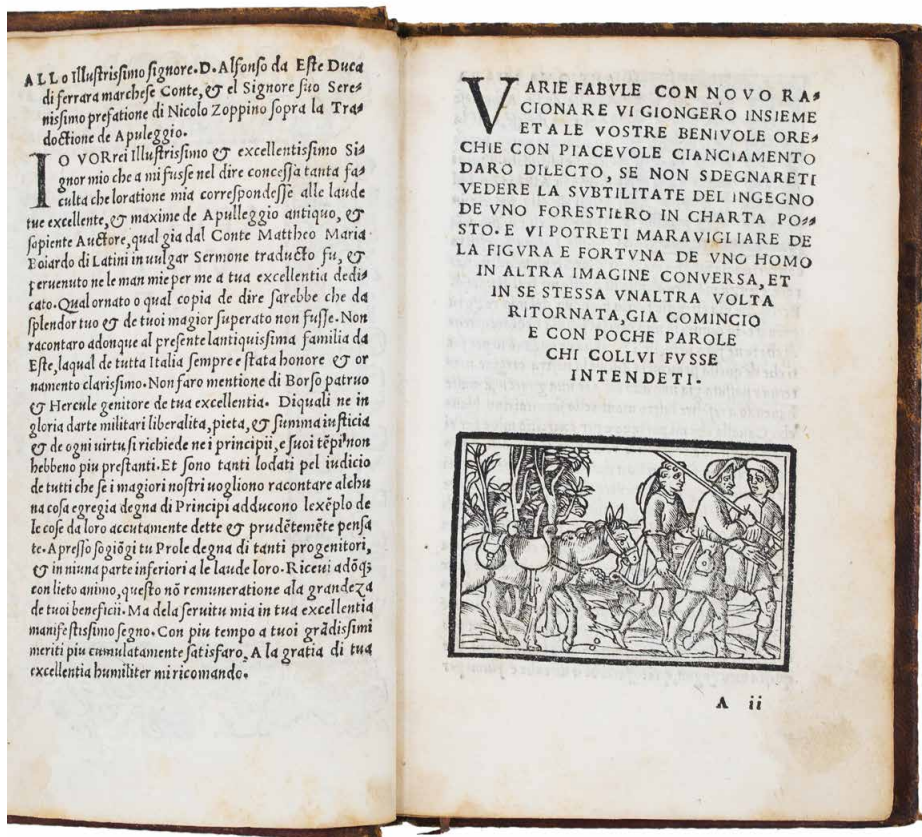 ALLo Illustrissimo signore.D.Alfonso da Este Duca
di ferrara marchese Conte,& el Signore suo Sere⸗
nissimo prefatione di Nicolo Zoppino sopra la Tra⸗
doctione de Apuleggio.
IO VORrei Illustrissimo & excellentissimo Si⸗
gnor mio che a mi fusse nel dire concessa tanta fa⸗
culta che loratione mia correspondesse alle laude
tue excellente,& maxime de Apulleggio antiquo, &
sapiente Auctore,qual gia dal Conte Mattheo Maria
Boiardo di Latini in uulgar Sermone traducto fu, &
peruenuto ne le man mie per me a tua excellentia dedi⸗
cato.Qual ornato o qual copia de dire sarebbe che da
splendor tuo & de tuoi magior superato non fusse.Non
racontaro adonque al presente lantiquissima familia da
Este,laqual de tutta Italia sempre e stata honore & or
namento clarissimo.Non faro mentione di Borso patruo
& Hercule genitore de tua excellentia. Diquali ne in
gloria darte militari liberalita,pieta,& summa iusticia
& de ogni uirtu si richiede nei principii,e suoi tẽpi non
hebbeno piu prestanti.Et sono tanti lodati pel iudicio
de tutti che se i magiori nostri uogliono racontare alchu
na cosa egregia degna di Principi adducono lexẽplo de
le cose da loro accutamente dette & prudẽtemẽte pensa
te.Apresso sogiõgi tu Prole degna di tanti progenitori,
& in niuna parte inferiori a le laude loro.Riceui adõq;
con lieto animo,questo nõ remuneratione ala grandeza
de tuoi beneficii.Ma dela seruitu mia in tua excellentia
manifestissimo segno.Con piu tempo a tuoi grãdissimi
meriti piu cumulatamente satisfaro,A la gratia di tua
excellentia humiliter mi ricomando.
VARIE FABVLE CON NOVO RA⸗
CIONARE VI GIONGERO INSIEME
ET A LE VOSTRE BENIVOLE ORE⸗
CHIE CON PIACEVOLE CIANCIAMENTO
DARO DILECTO, SE NON SDEGNARETI
VEDERE LA SVBTILITATE DEL INGEGNO
DE VNO FORESTIERO IN CHARTA PO⸗
STO. E VI POTRETI MARAVIGLIARE DE
LA FIGVRA E FORTVNA DE VNO HOMO
IN ALTRA IMAGINE CONVERSA, ET
IN SE STESSA VNALTRA VOLTA
RITORNATA, GIA COMINCIO
E CON POCHE PAROLE
CHI COLLVI FVSSE
INTENDETI.
A ii